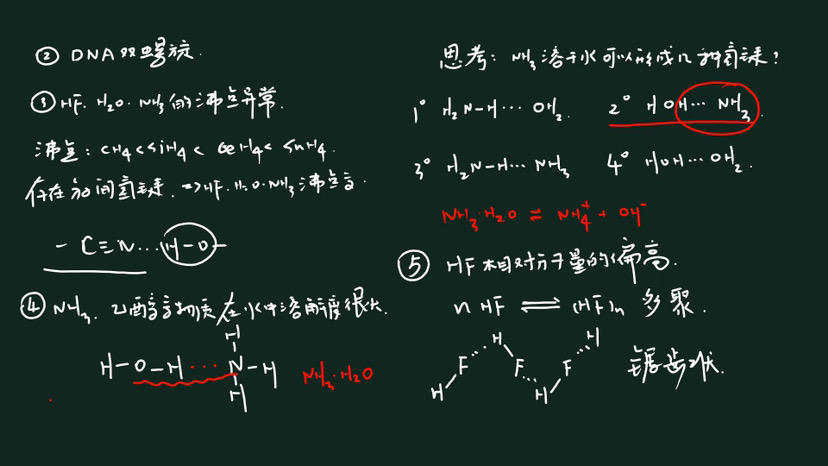 ② DNA双螺旋.
③ HF. H₂O. NH₃的沸点异常.
沸点: CH₄<SiH₄< GeH₄< SnH₄.
存在分子间氢键. => HF. H₂O. NH₃沸点高.
-C≡N…H-O-
④ NH₃. 乙醇等物质在水中溶解度很大.
H
H-O-H…N-H
H
NH₃·H₂O
思考: NH₃溶于水可以形成几种氢键?
1° H₂N-H… OH₂.
2° HOH… NH₃.
3° H₂N-H… NH₃
4° HOH…OH₂.
NH₃·H₂O ⇌ NH₄⁺ + OH⁻
⑤ HF相对分子量的偏高.
n HF ⇌ (HF)n 多聚.
H F … H F … H F … H
锯齿状.